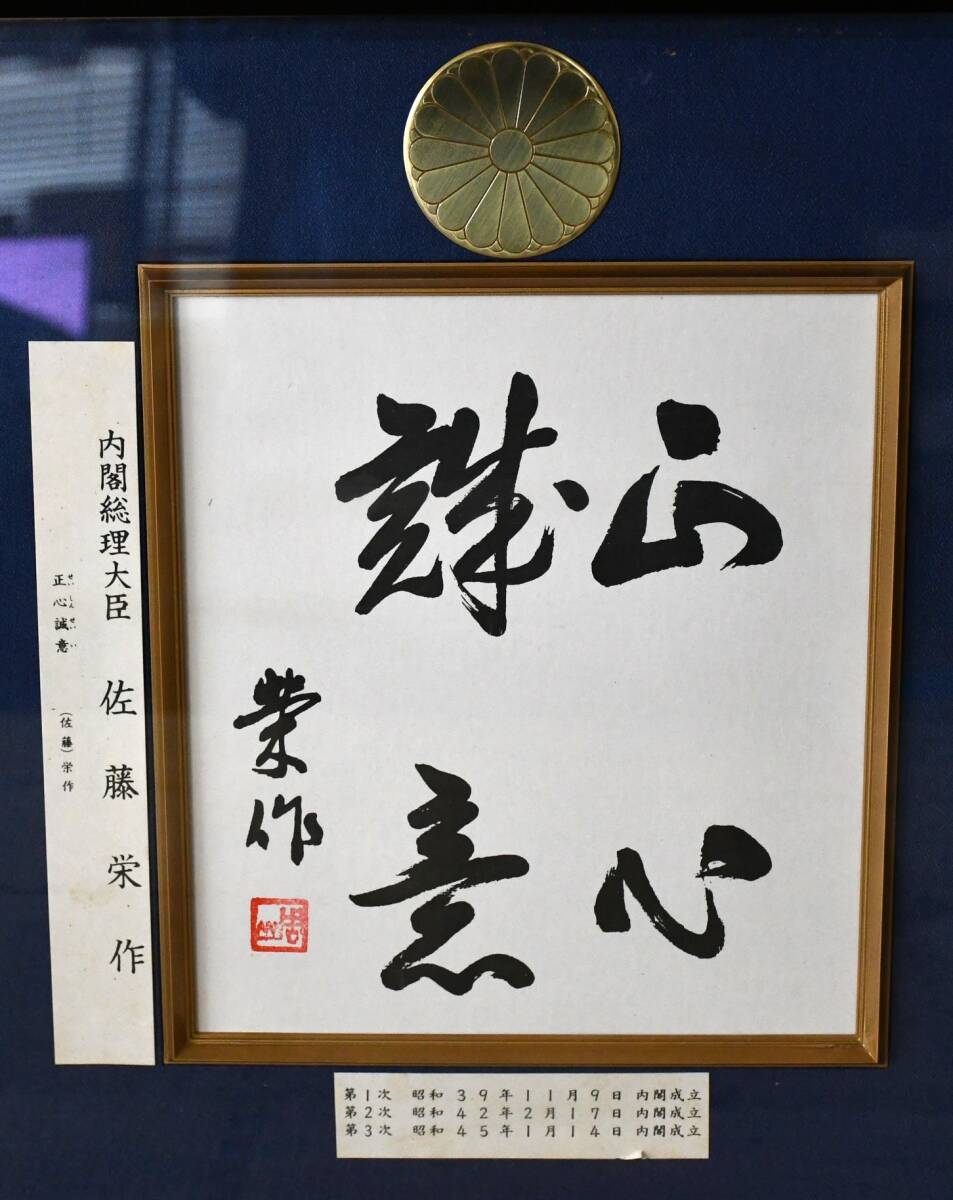 正心
誠意
栄作
内閣総理大臣 佐藤栄作
せいしんせいい
正心誠意 (佐藤)栄作
第1次 昭和39年11月9日 内閣成立
第2次 昭和42年2月17日 内閣成立
第3次 昭和45年1月14日 内閣成立